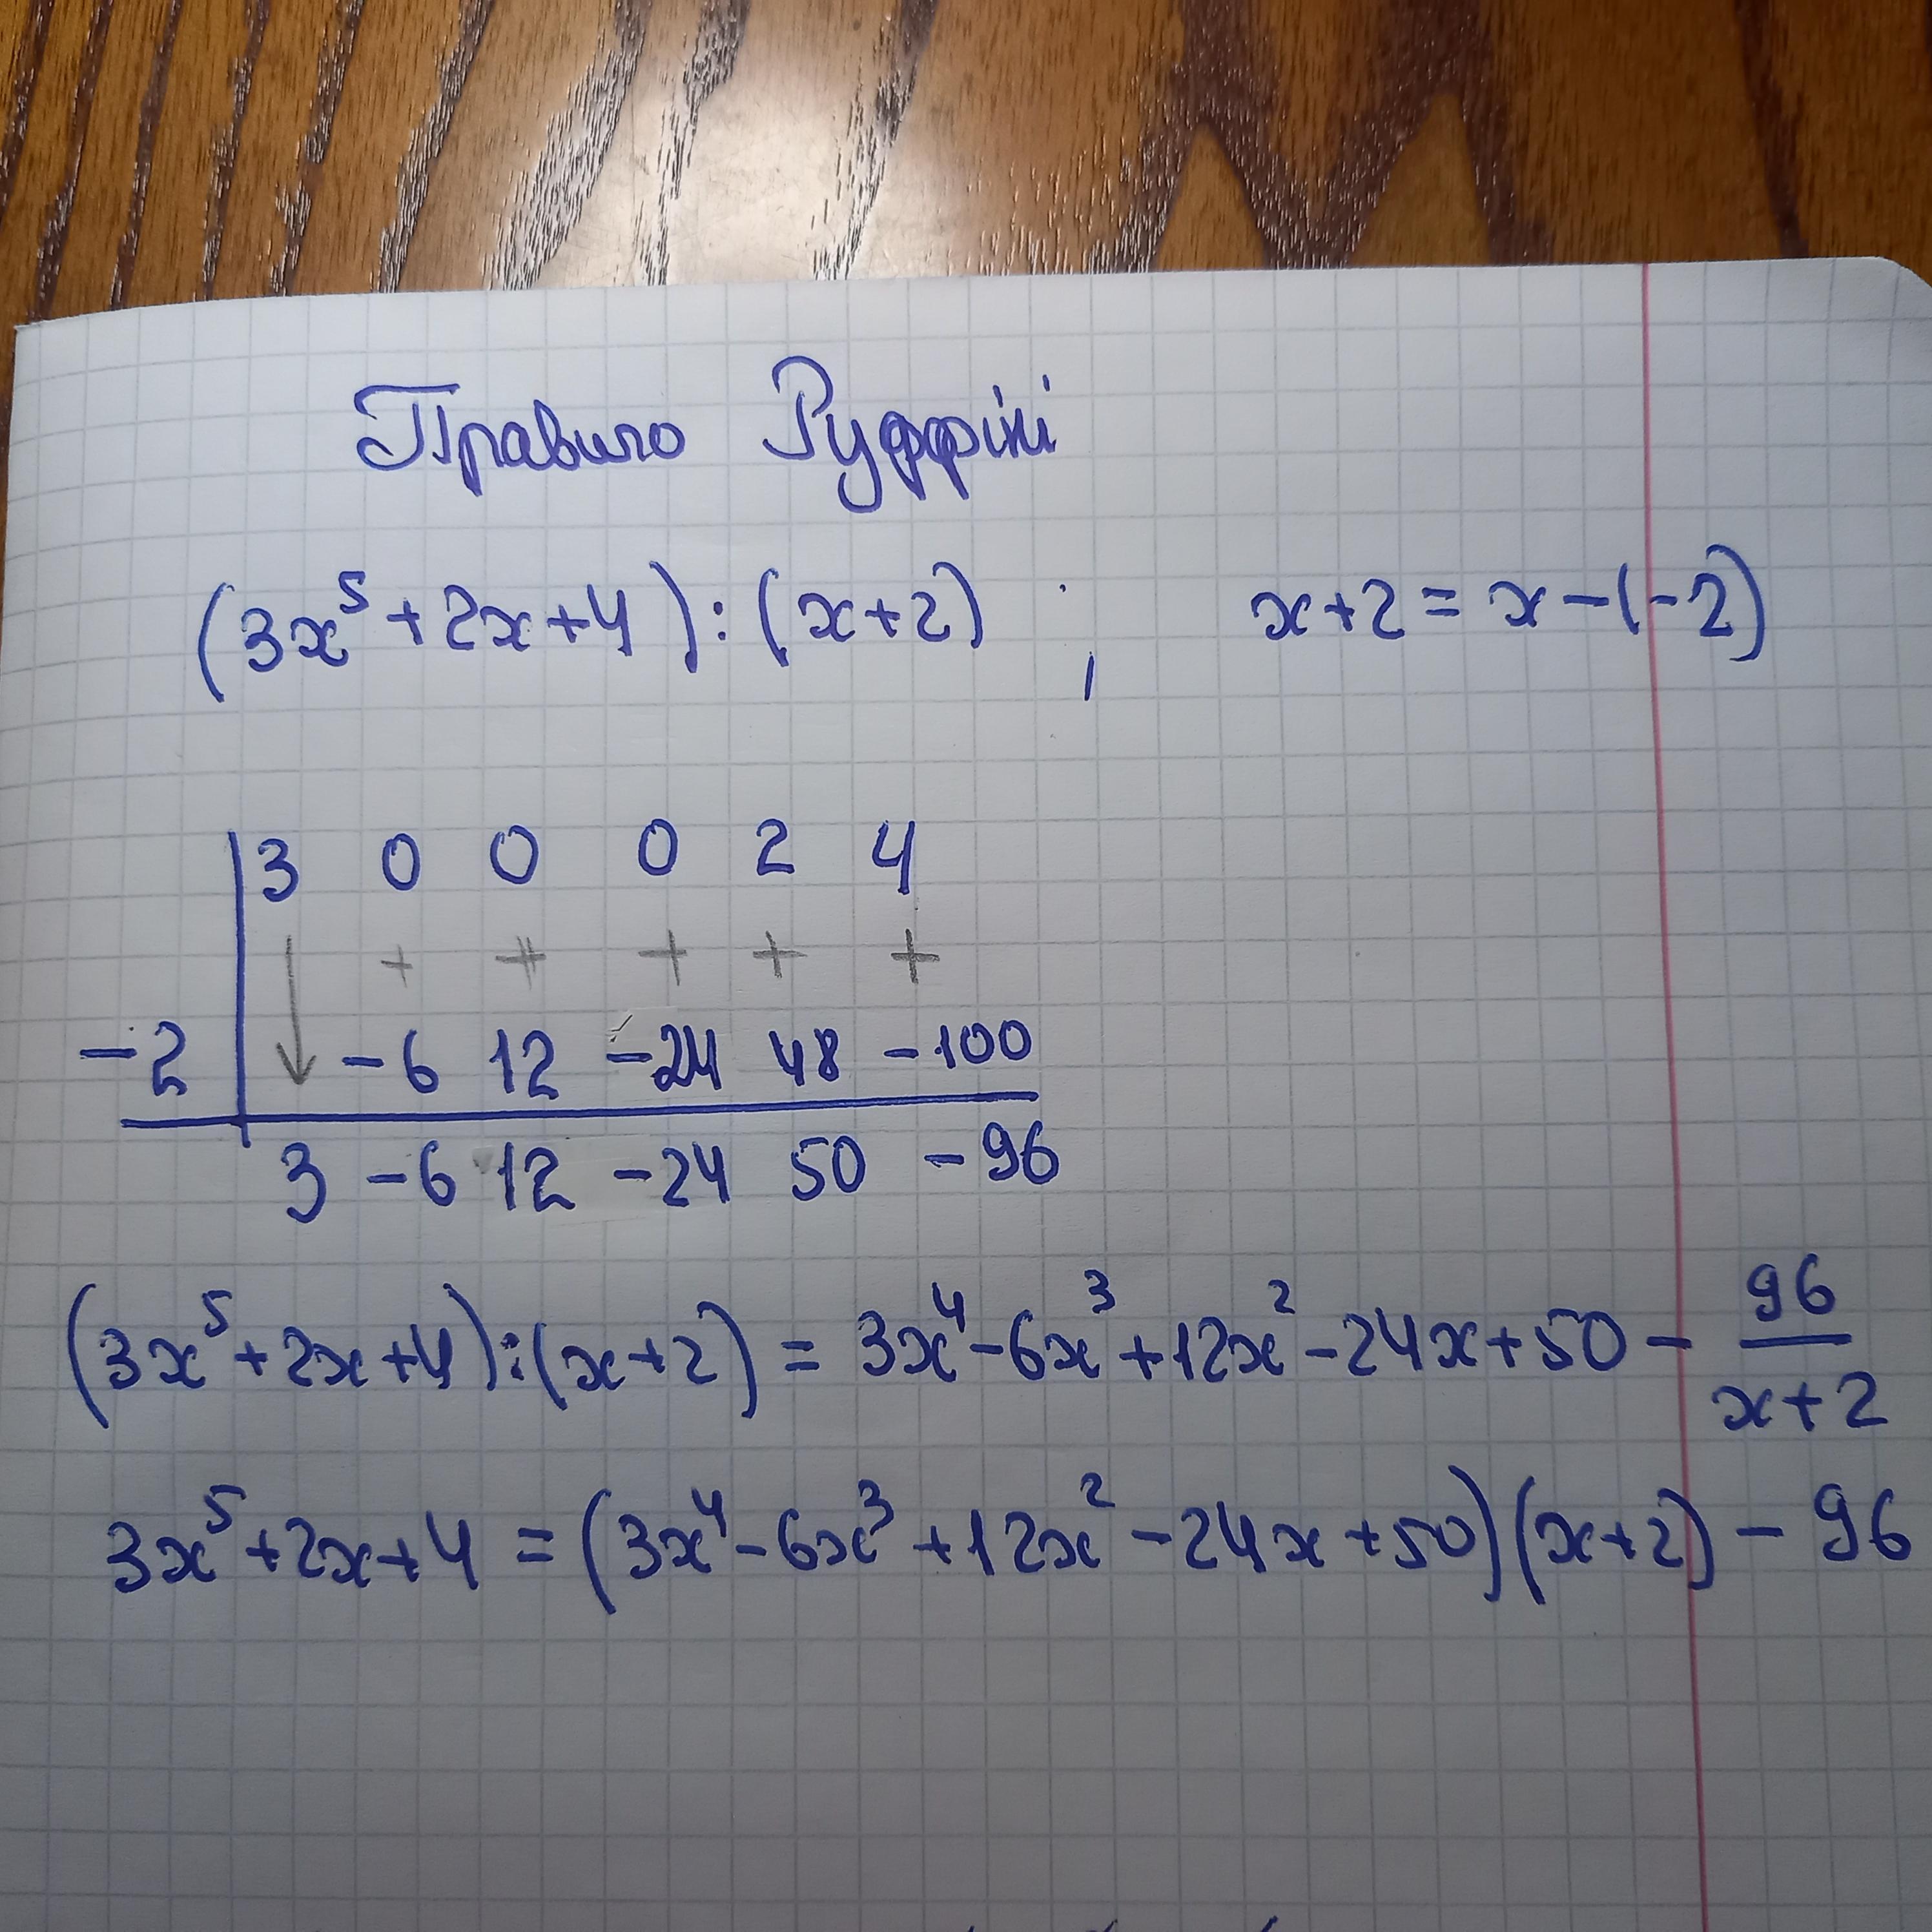 Правило Руффіні
(3x⁵+2x+4):(x+2) ; x+2=x-(-2)
3 0 0 0 2 4
+ + + + +
-2 ↓ -6 12 -24 48 -100
3 -6 12 -24 50 -96
(3x⁵+2x+4):(x+2) = 3x⁴-6x³+12x²-24x+50 - 96/(x+2)
3x⁵+2x+4 = (3x⁴-6x³+12x²-24x+50)(x+2) - 96